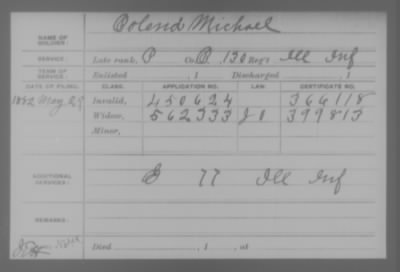 Poland Michael
NAME OF SOLDIER:
SERVICE: Late rank, P Co. B, 130 Reg't Ill Inf
TERM OF SERVICE: Enlisted , 1 Discharged , 1
DATE OF FILING. CLASS. APPLICATION NO. LAW. CERTIFICATE NO.
1882 May 29 Invalid, 450624 366118
Widow, 562333 399813
Minor,
ADDITIONAL SERVICES: G 77 Ill Inf
REMARKS:
Died , 1 , at